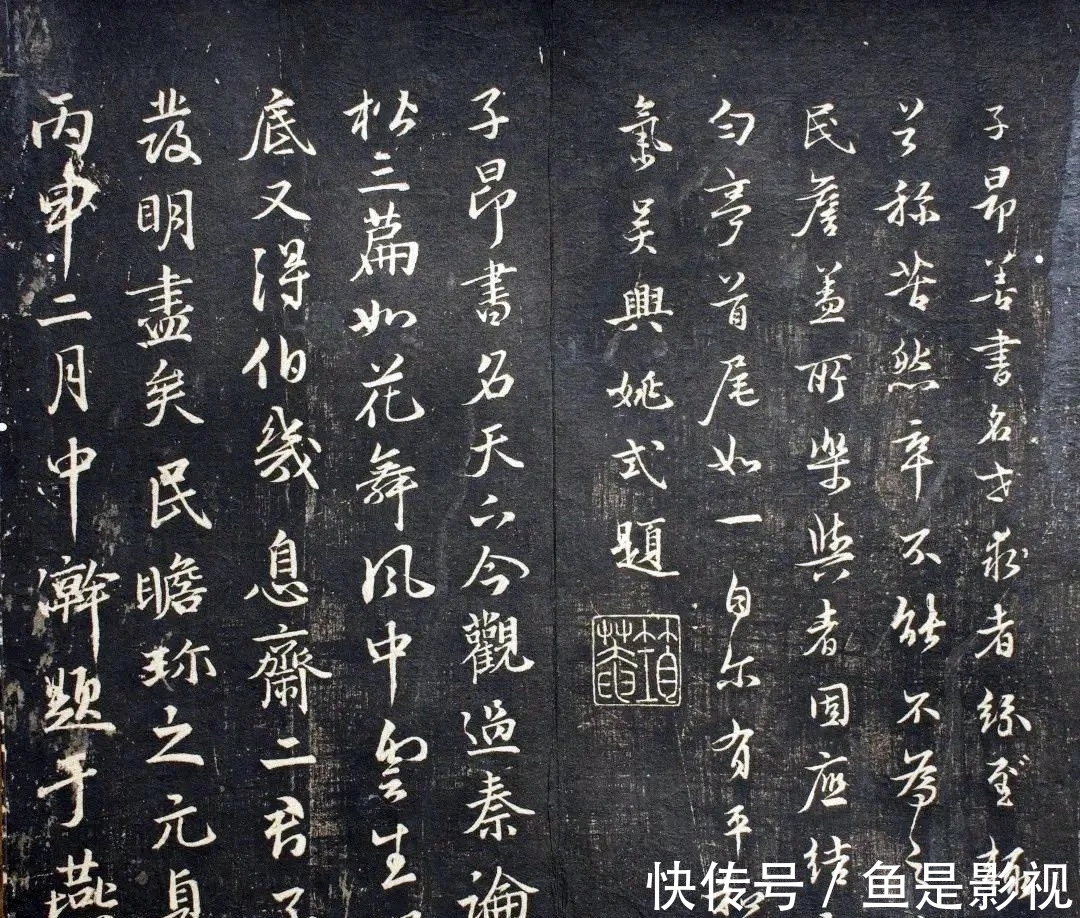 子昂善書名世求者紛至輒
以稱苦然卒不能不為之
民詹蓋所樂與者固應結
勻亭首尾如一自爾有平和
氣吴興姚式題
子昂書名天下今觀過秦論
松三篇如花舞風中雲生
底又得伯幾息齋二君子
發明盡矣民瞻珎之元貞
丙申二月中澣題于燕
快传号/鱼是影视